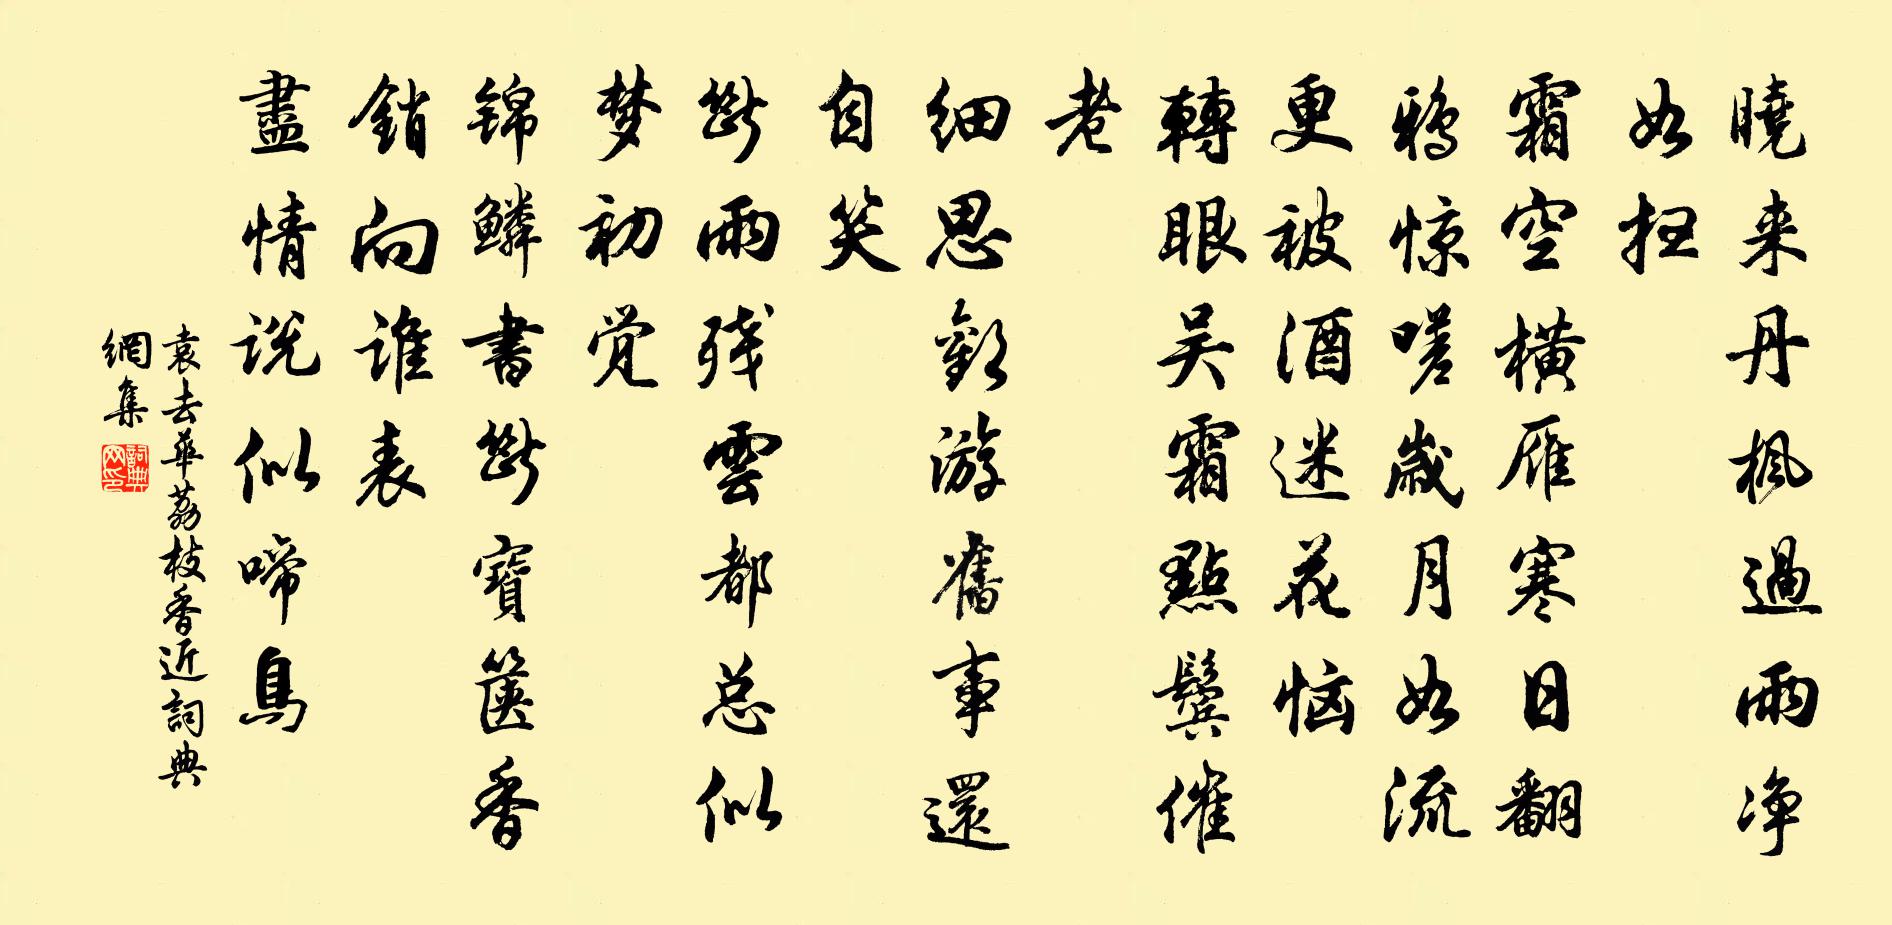 曉来丹枫過雨净
如扫
霜空横雁寒日翻
鸦惊嗟歲月如流
更被酒迷花恼
轉眼吴霜點鬓催
老
细思歡游舊事還
自笑
断雨残雲都总似
梦初觉
锦鳞書断寶箧香
銷向谁表
盡情说似啼鳥
袁去華荔枝香近詞典
網集
詞典网印